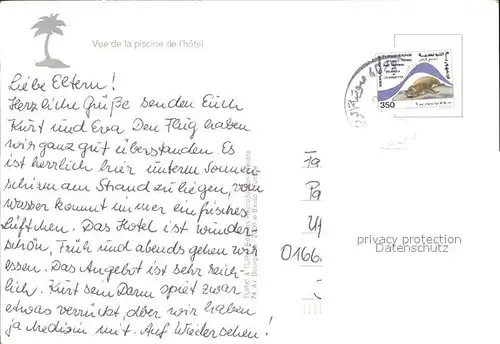 Vue de la piscine de l'hôtel
Liebe Eltern!
Herzliche Grüße senden Euch
Kurt und Eva. Den Flug haben
wir ganz gut überstanden. Es
ist herrlich hier unterm Sonnen-
schirm am Strand zu liegen, vom
Wasser kommt immer ein frisches
Lüftchen. Das Hotel ist wunder
schön, Früh und abends gehen wir
essen. Das Angebot ist sehr reich-
lich. Kurt sein Darm spielt zwar
etwas verrückt, aber wir haben
ja Medizin mit. Auf Wiedersehen!
350
0166
privacy protection
Datenschutz